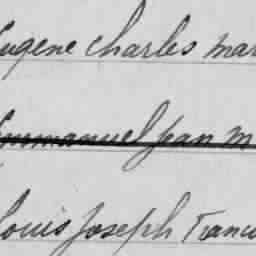 Eugene Charles Mar
Emmanuel Jean M
Louis Joseph Franc